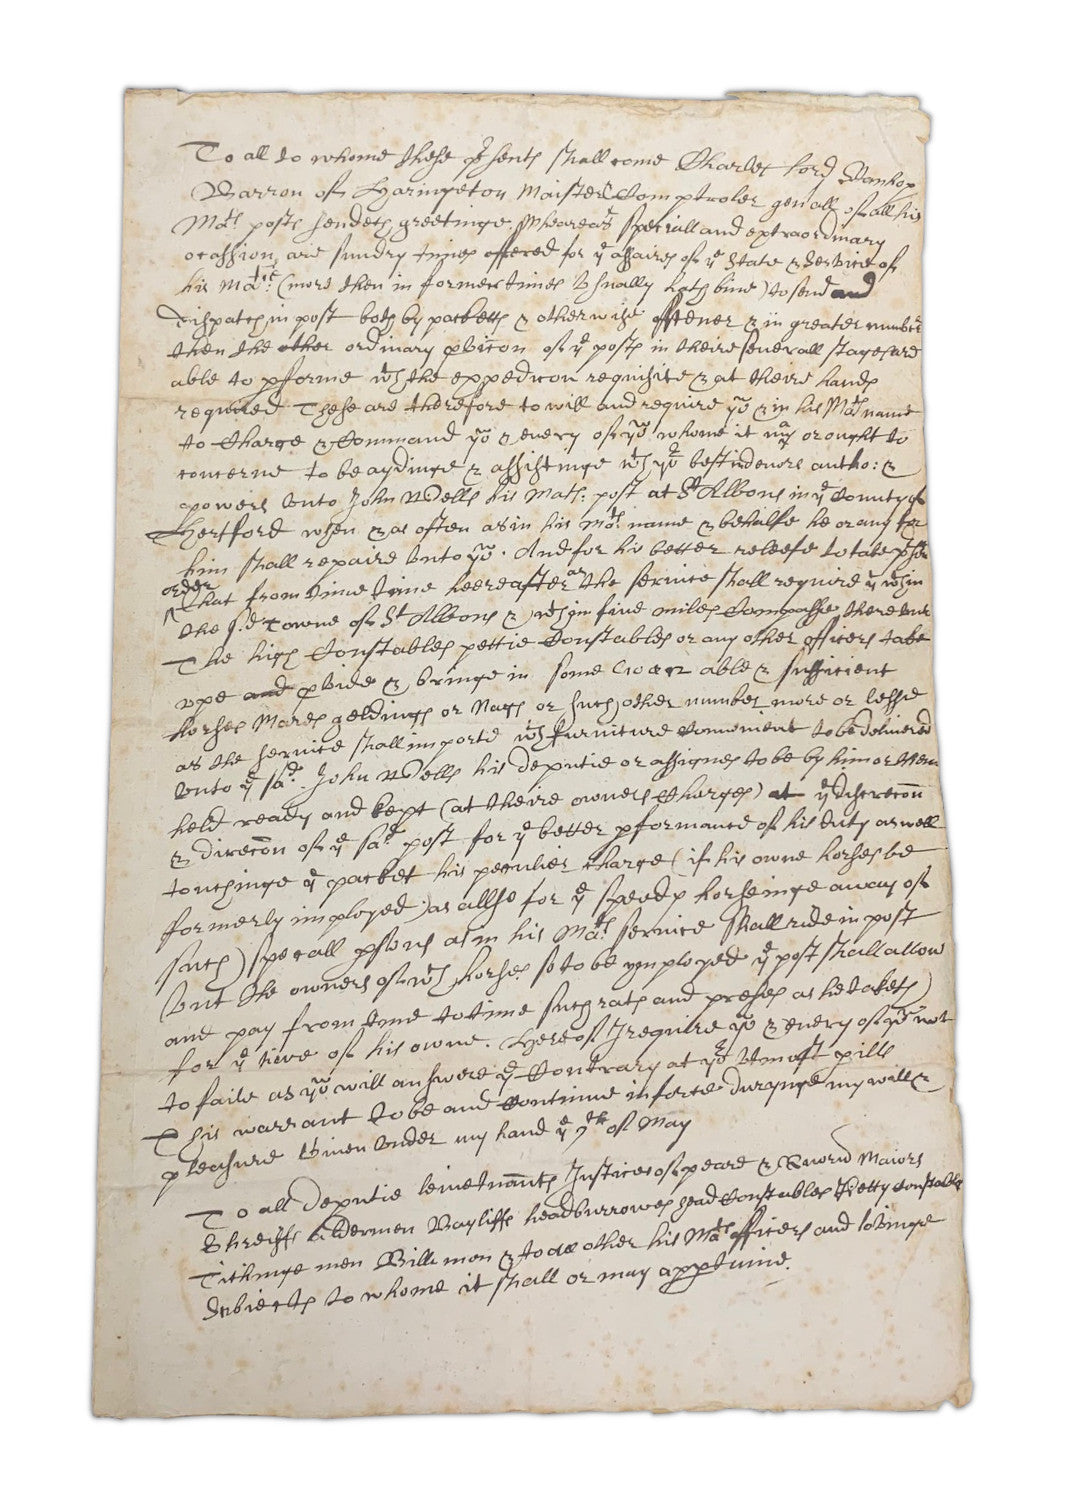 To all to whome these p̱sents shall come Charles lord Stanhop
Barron of Haringeton Maister Comptroler genall of all his
Mats posts sendeth greetinge. Whereas speciall and extraordinary
ocassions are sundry times offered for ye affaires of ye State & service of
his Matie (more then in former times Usually hath bine) to send and
Dispatch in post both by packetts & otherwise oftener & in greater number
then the other ordinary pvicon of ye posts in theire severall stages are
able to pforme wth the expedicon requisite & at theire hands
required These are therefore to will and require you & in his Mats name
to Charge & Command you & every of you whome it may or ought to
concerne to be aydinge & assistinge wth your best indevors autho: &
powers Unto John Wells his Mats: post at St Albons in ye County of
Hertford when & as often as in his Mats name & behalfe he or any for
him shall repaire Unto you. And for his better releefe to take psent
order
That from time time heereafter as the service shall require yt wthin
the sd Towne of St Albons & wthin five miles Compasse thereUnto
The high Constables pettie Constables or any other officers take
vpe and pvide & bringe in some able & sufficient
horses Mares geldings or Nags or such other number more or lesse
as the service shall importe wth furniture convenient to be delivered
Unto ye sad John Wells his deputie or assignes to be by him or them
held ready and kept (at theire owners Charges) at ye discrecon
& direcon of ye sad post for ye better pformance of his duty as well
touchinge ye packet his peculier charge (if his owne horses be
formerly imployed) as allso for ye speedy horseinge away of
such) speciall psons as in his Mats service Shall ride in post
(but the owners of wch horses so to be ymployed ye post shall allow
and pay from time to time such rats and preses as he taketh)
for ye hire of his owne. Hereof I require you & every of you not
to faile as you will answere ye Contrary at your Utmost pills
This warrant to be and Continue in force duringe my will &
pleasure Given Under my hand ye 7th of May
To all Deputie leivetnants Justices of peace & Quorū Maiors
Shreiffs Aldermen Bayliffs headburrowes head Constables Petty Constables
Tithinge men Bille men & to all other his Mats officers and lovinge
Subiects to whome it shall or may appertaine.